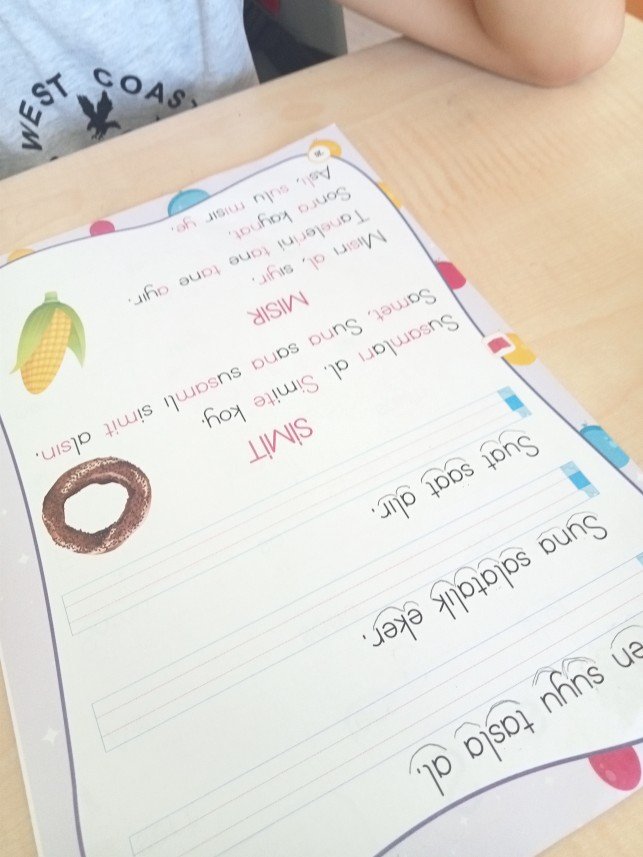 en suyu tasla al.
Suna salatalık eker.
Suat saat alır.
SİMİT
Susamları al. Simite koy.
Samet, Suna sana susamlı simit alsın.
MISIR
Mısırı al, sıyır.
Tanelerini tane tane ayır.
Sonra kaynat.
Aslı, sulu mısır ye.
WEST COAS